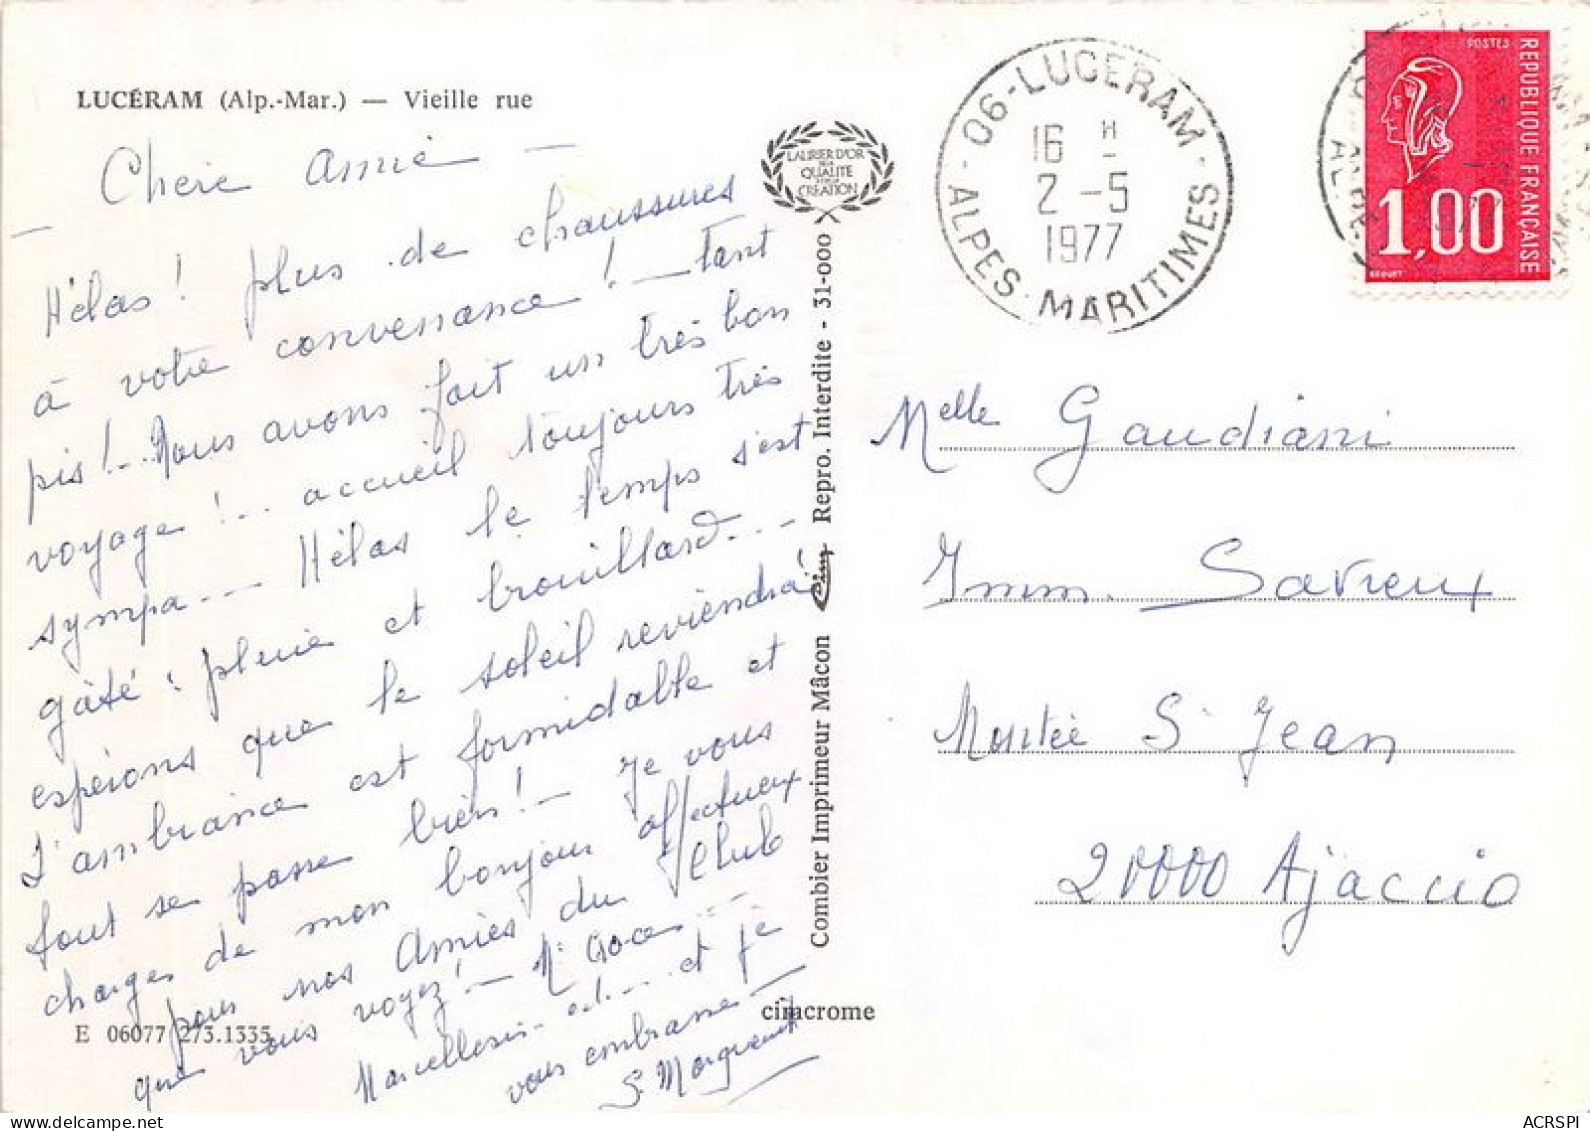 LUCÉRAM (Alp.-Mar.) — Vieille rue
Chère Amie —
— Hélas! plus de chaussures
à votre convenance! — tant
pis! — Nous avons fait un très bon
voyage!... accueil toujours très
sympa... Hélas le temps s'est
gâté : pluie et brouillard...
espérons que le soleil reviendra
L'ambiance est formidable et
tout se passe bien! — Je vous
charges de mon bonjour affectueux
pour nos Amies du Club
que vous voyez! — M.
et je
vous embrasse —
LAURIER D'OR
DE LA
QUALITÉ
CRÉATION
Combier Imprimeur Mâcon Cim Repro. Interdite - 31-000
cimacrome
E 06077 273.1335
06-LUCERAM
16 H
2 -5
1977
ALPES-MARITIMES
POSTES
REPUBLIQUE FRANÇAISE
1,00
BEQUET
Melle Gaudiani
Imm. Savreux
Montée St Jean
20000 Ajaccio
ACRSPI